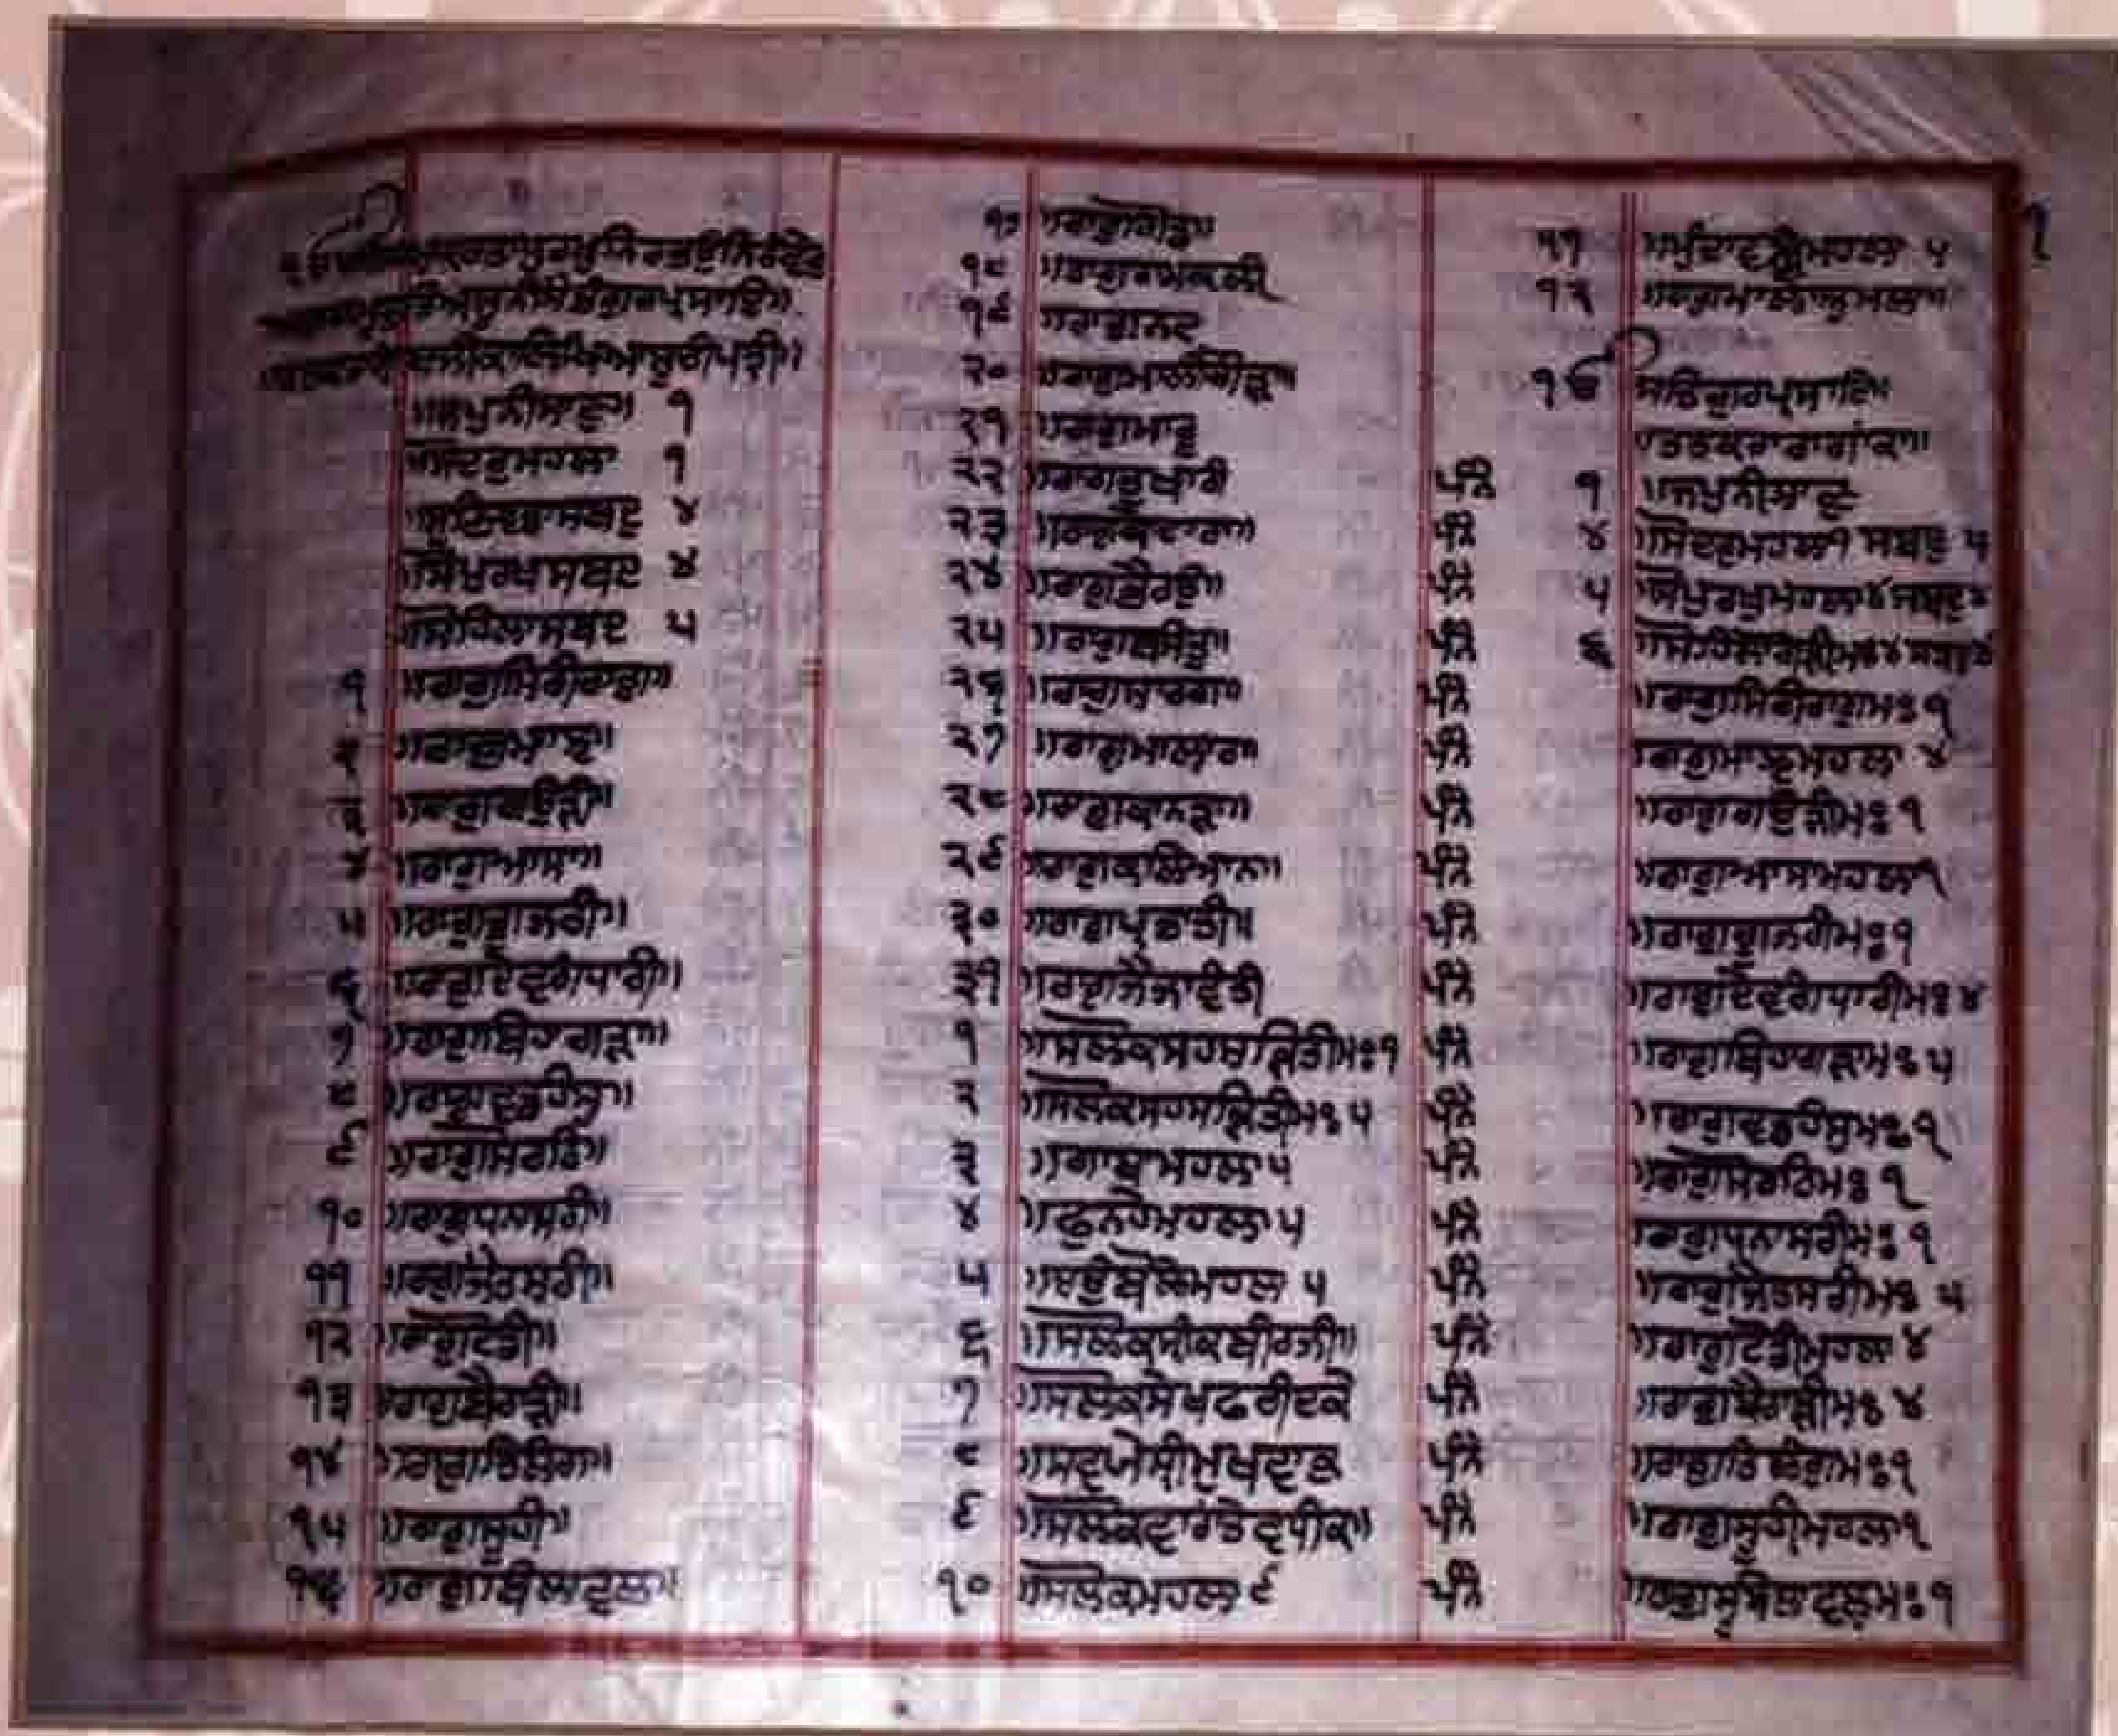 ਕਰਤਾਪੁਰਖੁਨਿਰਭਉਨਿਰਵੈਰੁ
ਅਕਾਲਮੂਰਤਿਅਜੂਨੀਸੈਭੰਗੁਰਪ੍ਰਸਾਦਿ॥
॥ਜਪੁਨੀਸਾਣੁ॥ ੧
॥ਸੋਦਰੁਮਹਲਾ ੧
ਸਬਦ ੪
॥ਸੋਪੁਰਖਸਬਦ ੪
॥ਸੋਹਿਲਾਸਬਦ ੫
੧ ॥ਰਾਗੁਸਿਰੀਰਾਗੁ॥
੨ ॥ਰਾਗੁਮਾਝ॥
੩ ॥ਰਾਗੁਗਉੜੀ॥
੪ ॥ਰਾਗੁਆਸਾ॥
੫ ॥ਰਾਗੁਗੂਜਰੀ॥
੬ ॥ਰਾਗੁਦੇਵਗੰਧਾਰੀ॥
੭ ॥ਰਾਗੁਬਿਹਾਗੜਾ॥
੮ ॥ਰਾਗੁਵਡਹੰਸੁ॥
੯ ॥ਰਾਗੁਸੋਰਠਿ॥
੧੦ ॥ਰਾਗੁਧਨਾਸਰੀ॥
੧੧ ॥ਰਾਗੁਜੈਤਸਰੀ॥
੧੨ ॥ਰਾਗੁਟੋਡੀ॥
੧੩ ॥ਰਾਗੁਬੈਰਾੜੀ॥
੧੪ ॥ਰਾਗੁਤਿਲੰਗ॥
੧੫ ॥ਰਾਗੁਸੂਹੀ॥
੧੬ ॥ਰਾਗੁਬਿਲਾਵਲੁ॥
੧੭ ॥ਰਾਗੁਗੋਡੁ॥
੧੮ ॥ਰਾਗੁਰਾਮਕਲੀ
੧੯ ॥ਰਾਗੁਨਟ
੨੦ ॥ਰਾਗੁਮਾਲੀਗੌੜਾ॥
੨੧ ॥ਰਾਗੁਮਾਰੂ
੨੨ ॥ਰਾਗੁਤੁਖਾਰੀ
੨੩ ॥ਰਾਗੁਕੇਦਾਰਾ॥
੨੪ ॥ਰਾਗੁਭੈਰਉ॥
੨੫ ॥ਰਾਗੁਬਸੰਤੁ॥
੨੬ ॥ਰਾਗੁਸਾਰਗ॥
੨੭ ॥ਰਾਗੁਮਾਲਾਰ॥
੨੮ ॥ਰਾਗੁਕਾਨੜਾ॥
੨੯ ॥ਰਾਗੁਕਲਿਆਨ॥
੩੦ ॥ਰਾਗੁਪ੍ਰਭਾਤੀ॥
੩੧ ॥ਰਾਗੁਜੈਜਾਵੰਤੀ
੧ ॥ਸਲੋਕਸਹਸਕ੍ਰਿਤੀਮਃ੧
੨ ॥ਸਲੋਕਸਹਸਕ੍ਰਿਤੀਮਃ ੫
੩ ॥ਗਾਥਾਮਹਲਾ ੫
੪ ॥ਫੁਨਹੇਮਹਲਾ ੫
੫ ॥ਚਉਬੋਲੇਮਹਲਾ ੫
੬ ॥ਸਲੋਕਸ੍ਰੀਕਬੀਰਜੀ॥
੭ ॥ਸਲੋਕਸੇਖਫਰੀਦਕੇ
੮ ॥ਸਵਯੇਸ੍ਰੀਮੁਖਵਾਕ
੯ ॥ਸਲੋਕਵਾਰਾਂਤੇਵਧੀਕ॥
੧੦ ॥ਸਲੋਕਮਹਲਾ ੯
੧੧ ॥ਮੁੰਦਾਵਣੀਮਹਲਾ ੫
੧੨ ॥ਰਾਗਮਾਲਾ
ੴ ਸਤਿਗੁਰਪ੍ਰਸਾਦਿ॥
॥ਤਤਕਰਾਰਾਗਾਂਕਾ॥
ਪੰਨੇ ੧ ॥ਜਪੁਨੀਸਾਣੁ
ਪੰਨੇ ੪ ॥ਸੋਦਰੁਮਹਲਾ੧ ਸਬਦ ੫
ਪੰਨੇ ੫ ॥ਸੋਪੁਰਖੁਮਹਲਾ੪ਸਬਦ੪
ਪੰਨੇ ੬ ॥ਸੋਹਿਲਾ
ਪੰਨੇ ॥ਰਾਗੁਸਿਰੀਰਾਗੁਮਃ ੧
ਪੰਨੇ ॥ਰਾਗੁਮਾਝਮਹਲਾ ੪
ਪੰਨੇ ॥ਰਾਗੁਗਉੜੀਮਃ ੧
ਪੰਨੇ ॥ਰਾਗੁਆਸਾਮਹਲਾ੧
ਪੰਨੇ ॥ਰਾਗੁਗੂਜਰੀਮਃ ੧
ਪੰਨੇ ॥ਰਾਗੁਦੇਵਗੰਧਾਰੀਮਃ ੪
ਪੰਨੇ ॥ਰਾਗੁਬਿਹਾਗੜਾਮਃ ੫
ਪੰਨੇ ॥ਰਾਗੁਵਡਹੰਸੁਮਃ ੧
ਪੰਨੇ ॥ਰਾਗੁਸੋਰਠਿਮਃ ੧
ਪੰਨੇ ॥ਰਾਗੁਧਨਾਸਰੀਮਃ ੧
ਪੰਨੇ ॥ਰਾਗੁਜੈਤਸਰੀਮਃ ੫
ਪੰਨੇ ॥ਰਾਗੁਟੋਡੀਮਹਲਾ ੪
ਪੰਨੇ ॥ਰਾਗੁਬੈਰਾੜੀਮਃ ੪
ਪੰਨੇ ॥ਰਾਗੁਤਿਲੰਗੁਮਃ ੧
ਪੰਨੇ ॥ਰਾਗੁਸੂਹੀਮਹਲਾ੧
ਪੰਨੇ ਮਃ ੧
੧